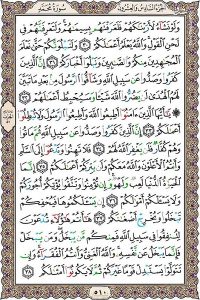 الجزء السادس والعشرون سورة محمد
وَلَوْ نَشَآءُ لَأَرَيْنَٰكَهُمْ فَلَعَرَفْتَهُم بِسِيمَٰهُمْ وَلَتَعْرِفَنَّهُمْ فِى
لَحْنِ ٱلْقَوْلِ وَٱللَّهُ يَعْلَمُ أَعْمَٰلَكُمْ ٣٠ وَلَنَبْلُوَنَّكُمْ حَتَّىٰ نَعْلَمَ
ٱلْمُجَٰهِدِينَ مِنكُمْ وَٱلصَّٰبِرِينَ وَنَبْلُوَا۟ أَخْبَارَكُمْ ٣١ إِنَّ ٱلَّذِينَ
كَفَرُوا۟ وَصَدُّوا۟ عَن سَبِيلِ ٱللَّهِ وَشَآقُّوا۟ ٱلرَّسُولَ مِنۢ بَعْدِ مَا تَبَيَّنَ
لَهُمُ ٱلْهُدَىٰ لَن يَضُرُّوا۟ ٱللَّهَ شَيْـًٔا وَسَيُحْبِطُ أَعْمَٰلَهُمْ ٣٢
يَٰٓأَيُّهَا ٱلَّذِينَ ءَامَنُوٓا۟ أَطِيعُوا۟ ٱللَّهَ وَأَطِيعُوا۟ ٱلرَّسُولَ وَلَا تُبْطِلُوٓا۟
أَعْمَٰلَكُمْ ٣٣ إِنَّ ٱلَّذِينَ كَفَرُوا۟ وَصَدُّوا۟ عَن سَبِيلِ ٱللَّهِ ثُمَّ مَاتُوا۟
وَهُمْ كُفَّارٌ فَلَن يَغْفِرَ ٱللَّهُ لَهُمْ ٣٤ فَلَا تَهِنُوا۟ وَتَدْعُوٓا۟ إِلَى ٱلسَّلْمِ
وَأَنتُمُ ٱلْأَعْلَوْنَ وَٱللَّهُ مَعَكُمْ وَلَن يَتِرَكُمْ أَعْمَٰلَكُمْ ٣٥ إِنَّمَا
ٱلْحَيَوٰةُ ٱلدُّنْيَا لَعِبٌ وَلَهْوٌ وَإِن تُؤْمِنُوا۟ وَتَتَّقُوا۟ يُؤْتِكُمْ أُجُورَكُمْ
وَلَا يَسْـَٔلْكُمْ أَمْوَٰلَكُمْ ٣٦ إِن يَسْـَٔلْكُمُوهَا فَيُحْفِكُمْ
تَبْخَلُوا۟ وَيُخْرِجْ أَضْغَٰنَكُمْ ٣٧ هَٰٓأَنتُمْ هَٰٓؤُلَآءِ تُدْعَوْنَ
لِتُنفِقُوا۟ فِى سَبِيلِ ٱللَّهِ فَمِنكُم مَّن يَبْخَلُ وَمَن يَبْخَلْ
فَإِنَّمَا يَبْخَلُ عَن نَّفْسِهِۦ وَٱللَّهُ ٱلْغَنِىُّ وَأَنتُمُ ٱلْفُقَرَآءُ وَإِن
تَتَوَلَّوْا۟ يَسْتَبْدِلْ قَوْمًا غَيْرَكُمْ ثُمَّ لَا يَكُونُوٓا۟ أَمْثَٰلَكُم ٣٨
٥١٠